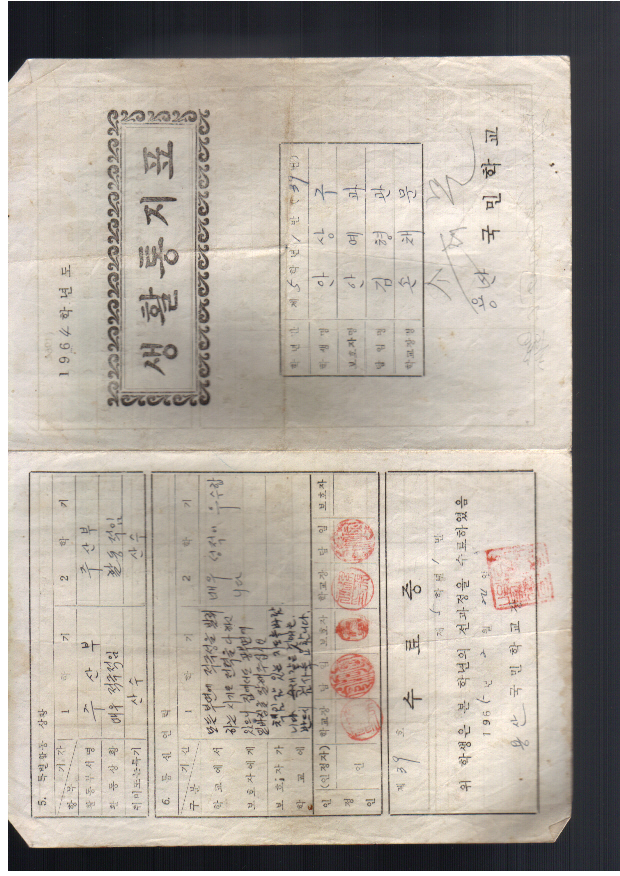 5. 특별활동 상황
기간
항목
1 학 기
2 학 기
활동부서명
주산부
주산부
활동상황
매우 적극적임
활동적임
취미또는특기
산수
산수
6. 통신연락
기간
구분
1 학 기
2 학 기
학교에서
보호자에게
모든부면에 적극성을 발휘
하는 시기로 전력을 다 하고
있으니 집에서도
주십시오
매우 성적이 우수합
니다
보호자가
학교에
책임감 있는 지도 바랍
니다
반드시 검사를 요합니다.
인정인
(인정자)
학교장
담임
보호자
학교장
담임
보호자
인
제 39 호
수료증
제 5 학년 1 반
위 학생은 본 학년의 전과정을 수료하였음
1965년 2월 일
용산 국민학교장
1964학년도
생활통지표
학년반
제 5 학년 1 반 (39번)
학생명
안상주
보호자명
안예과
담임명
김형관
학교장명
손채문
용산 국민학교